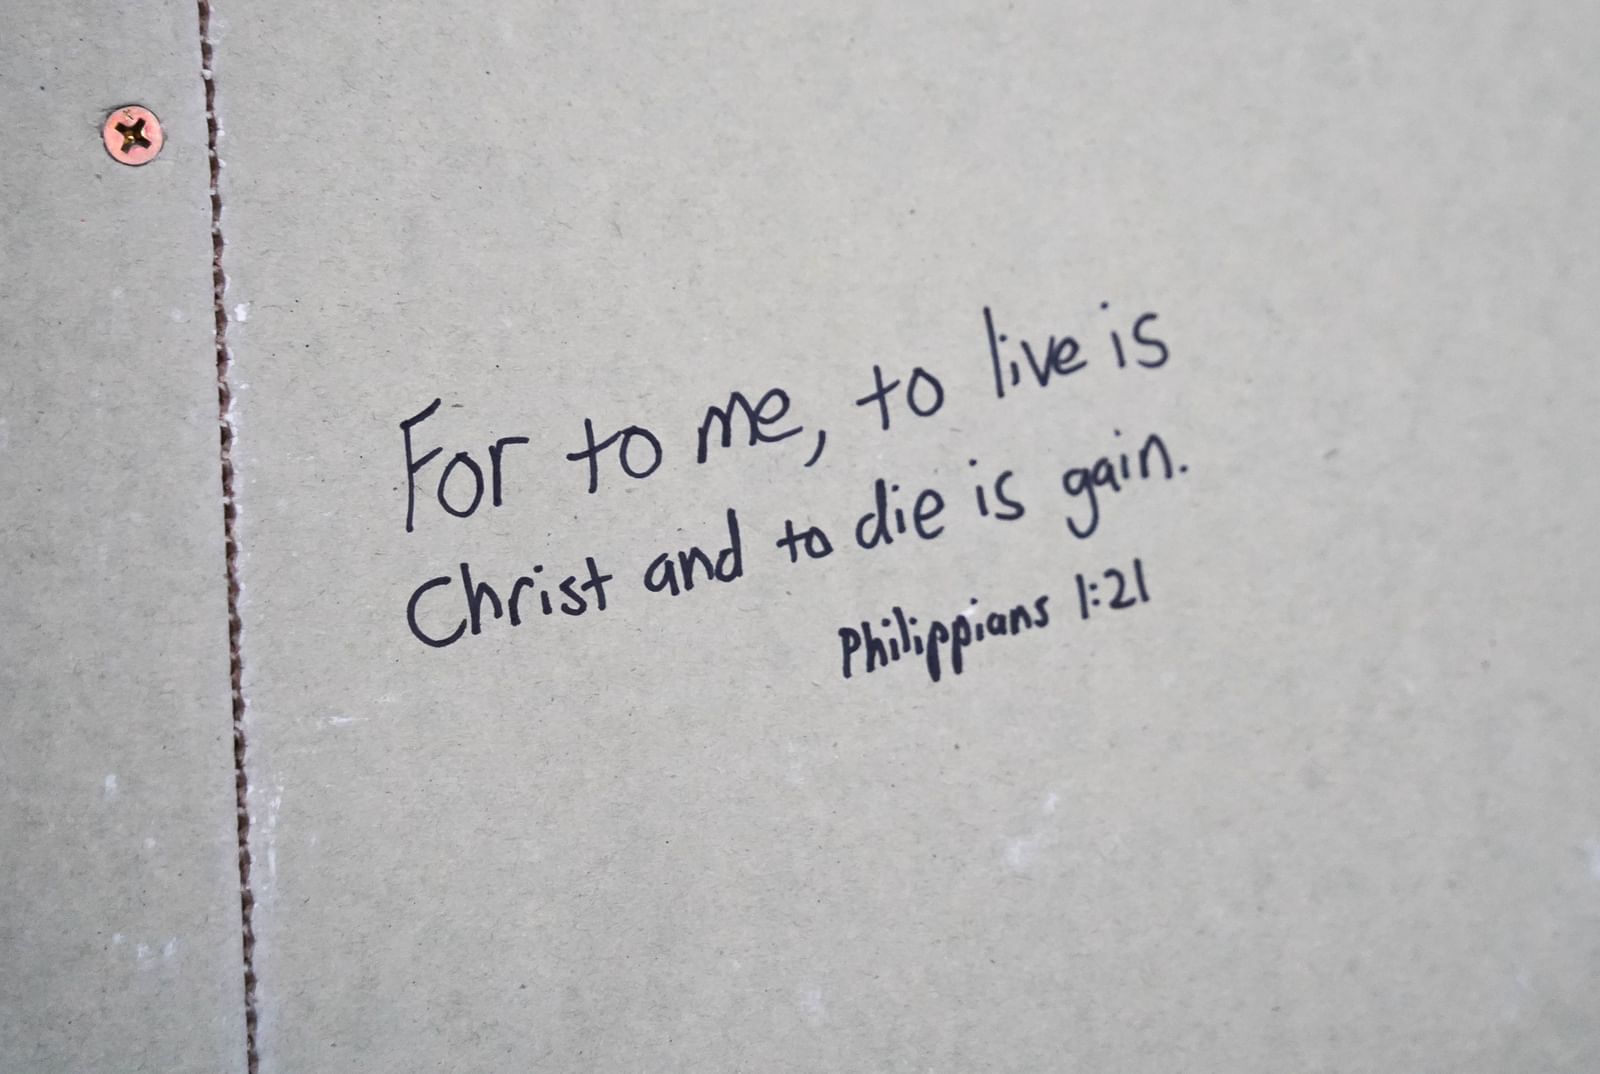 For to me, to live is
Christ and to die is gain.
Philippians 1:21